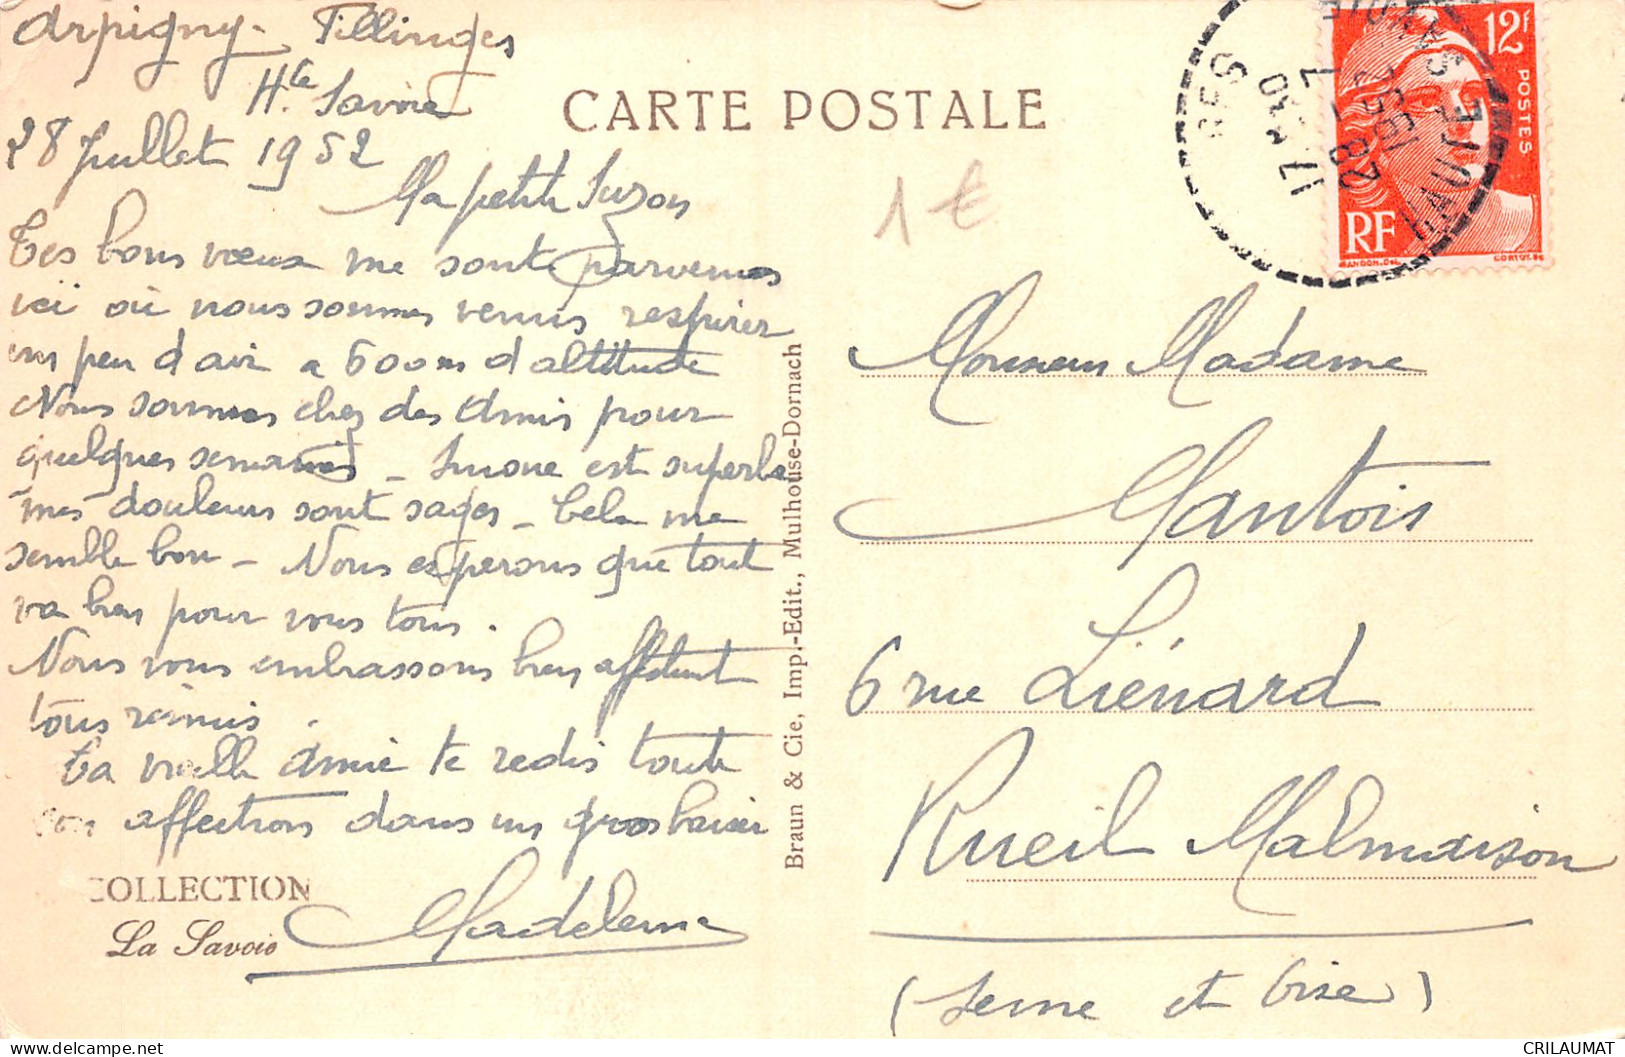 Arpigny - Fillinges
Hte Savoie
28 Juillet 1952
Ma petite Suzon
Tes bons vœux me sont parvenus
ici où nous sommes venus respirer
un peu d'air a 600m d'altitude
Nous sommes chez des amis pour
quelques semaines - Simone est superbe
mes douleurs sont sages - Cela me
semble bon - Nous esperons que tout
va bien pour vous tous.
Nous vous embrassons bien affectueust
tous réunis.
Ta vieille amie te redis toute
son affection dans un gros baiser
Madeleine
COLLECTION
La Savoie
CARTE POSTALE
1 €
Braun & Cie, Imp.-Edit., Mulhouse-Dornach
12F
POSTES
RF
17 30
28 - 7
1952
Monsieur Madame
Mantois
6 rue Liénard
Rueil Malmaison
(Seine et Oise)
delcampe.net
CRILAUMAT